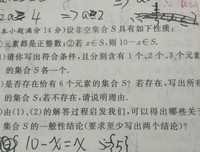 2a≥4 ⇒a≥2
本小题满分14分)设非空集合S具有如下性质:
元素都是正整数;②若x∈S,则10-x∈S.
请你写出符合条件,且分别含有1个、2个、3个元素
的集合S各一个.
是否存在恰有6个元素的集合S?若存在,写出所有
的集合S;若不存在,请说明理由.
由(1)、(2)的解答过程启发我们,可以得出哪些关于
集合S的一般性结论(要求至少写出两个结论)?
10-x=x